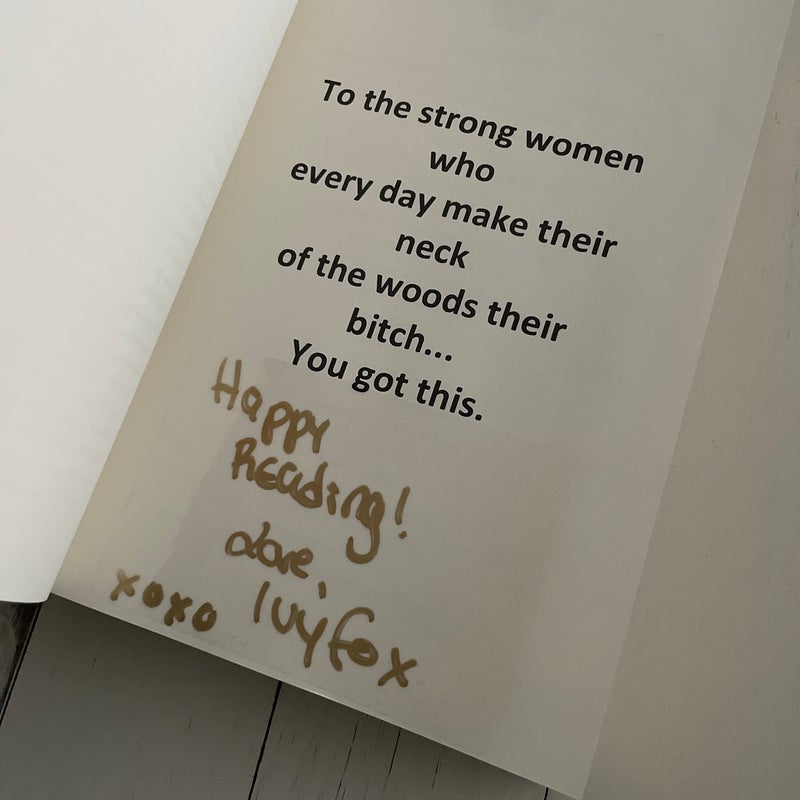 To the strong women
who
every day make their
neck
of the woods their
bitch...
You got this.
Happy
Reading!
Love,
xoxo Ivy Fox